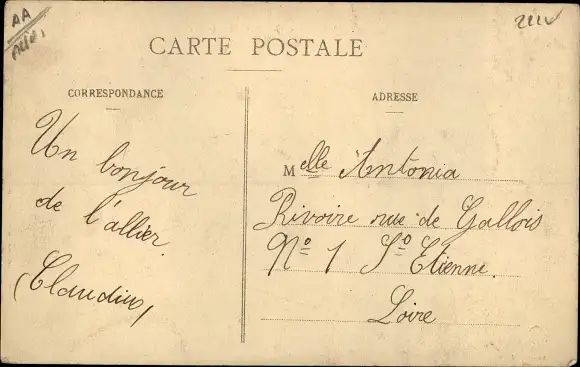 AA
CARTE POSTALE
CORRESPONDANCE
Un bonjour
de l'allier
(Claudius)
ADRESSE
Melle Antonia
Rivoire rue de Gallois
No 1 St Etienne
Loire